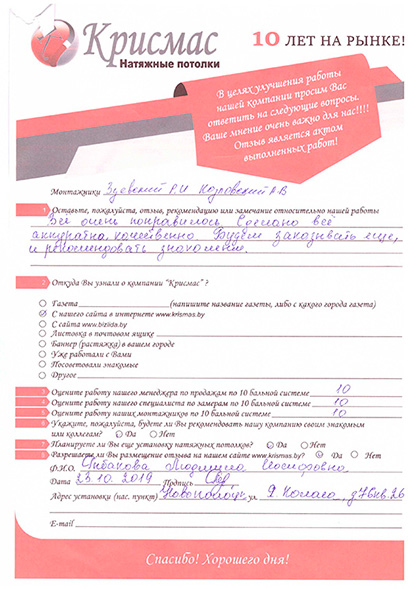 Крисмас
Натяжные потолки
10 ЛЕТ НА РЫНКЕ!
В целях улучшения работы
нашей компании просим Вас
ответить на следующие вопросы.
Ваше мнение очень важно для нас!!!!
Отзыв является актом
выполненных работ!
Монтажники Зуевский Р.И Козловский А В
1 Оставьте, пожалуйста, отзыв, рекомендацию или замечание относительно нашей работы
Все очень понравилось Сделано всё
аккуратно, качественно. Будем заказывать еще,
и рекомендовать знакомым.
2 Откуда Вы узнали о компании "Крисмас" ?
Газета (напишите название газеты, либо с какого города газета)
С нашего сайта в интернете www.krismas.by
С сайта www.bizilda.by
Листовка в почтовом ящике
Баннер (растяжка) в вашем городе
Уже работали с Вами
Посоветовали знакомые
Другое
3 Оцените работу нашего менеджера по продажам по 10 бальной системе 10
4 Оцените работу нашего специалиста по замерам по 10 бальной системе 10
5 Оцените работу наших монтажников по 10 бальной системе 10
6 Укажите, пожалуйста, будете ли Вы рекомендовать нашу компанию своим знакомым
или коллегам? Да Нет
7 Планируете ли Вы еще установку натяжных потолков? Да Нет
8 Разрешаете ли Вы размещение отзыва на нашем сайте www.krismas.by? Да Нет
Ф.И.О. Людмила Иосифовна
Дата 23.10.2019 Подпись
Адрес установки (нас. пункт) Новополоцк ул. Я. Коласа, д76кв.26
E-mail
Спасибо! Хорошего дня!